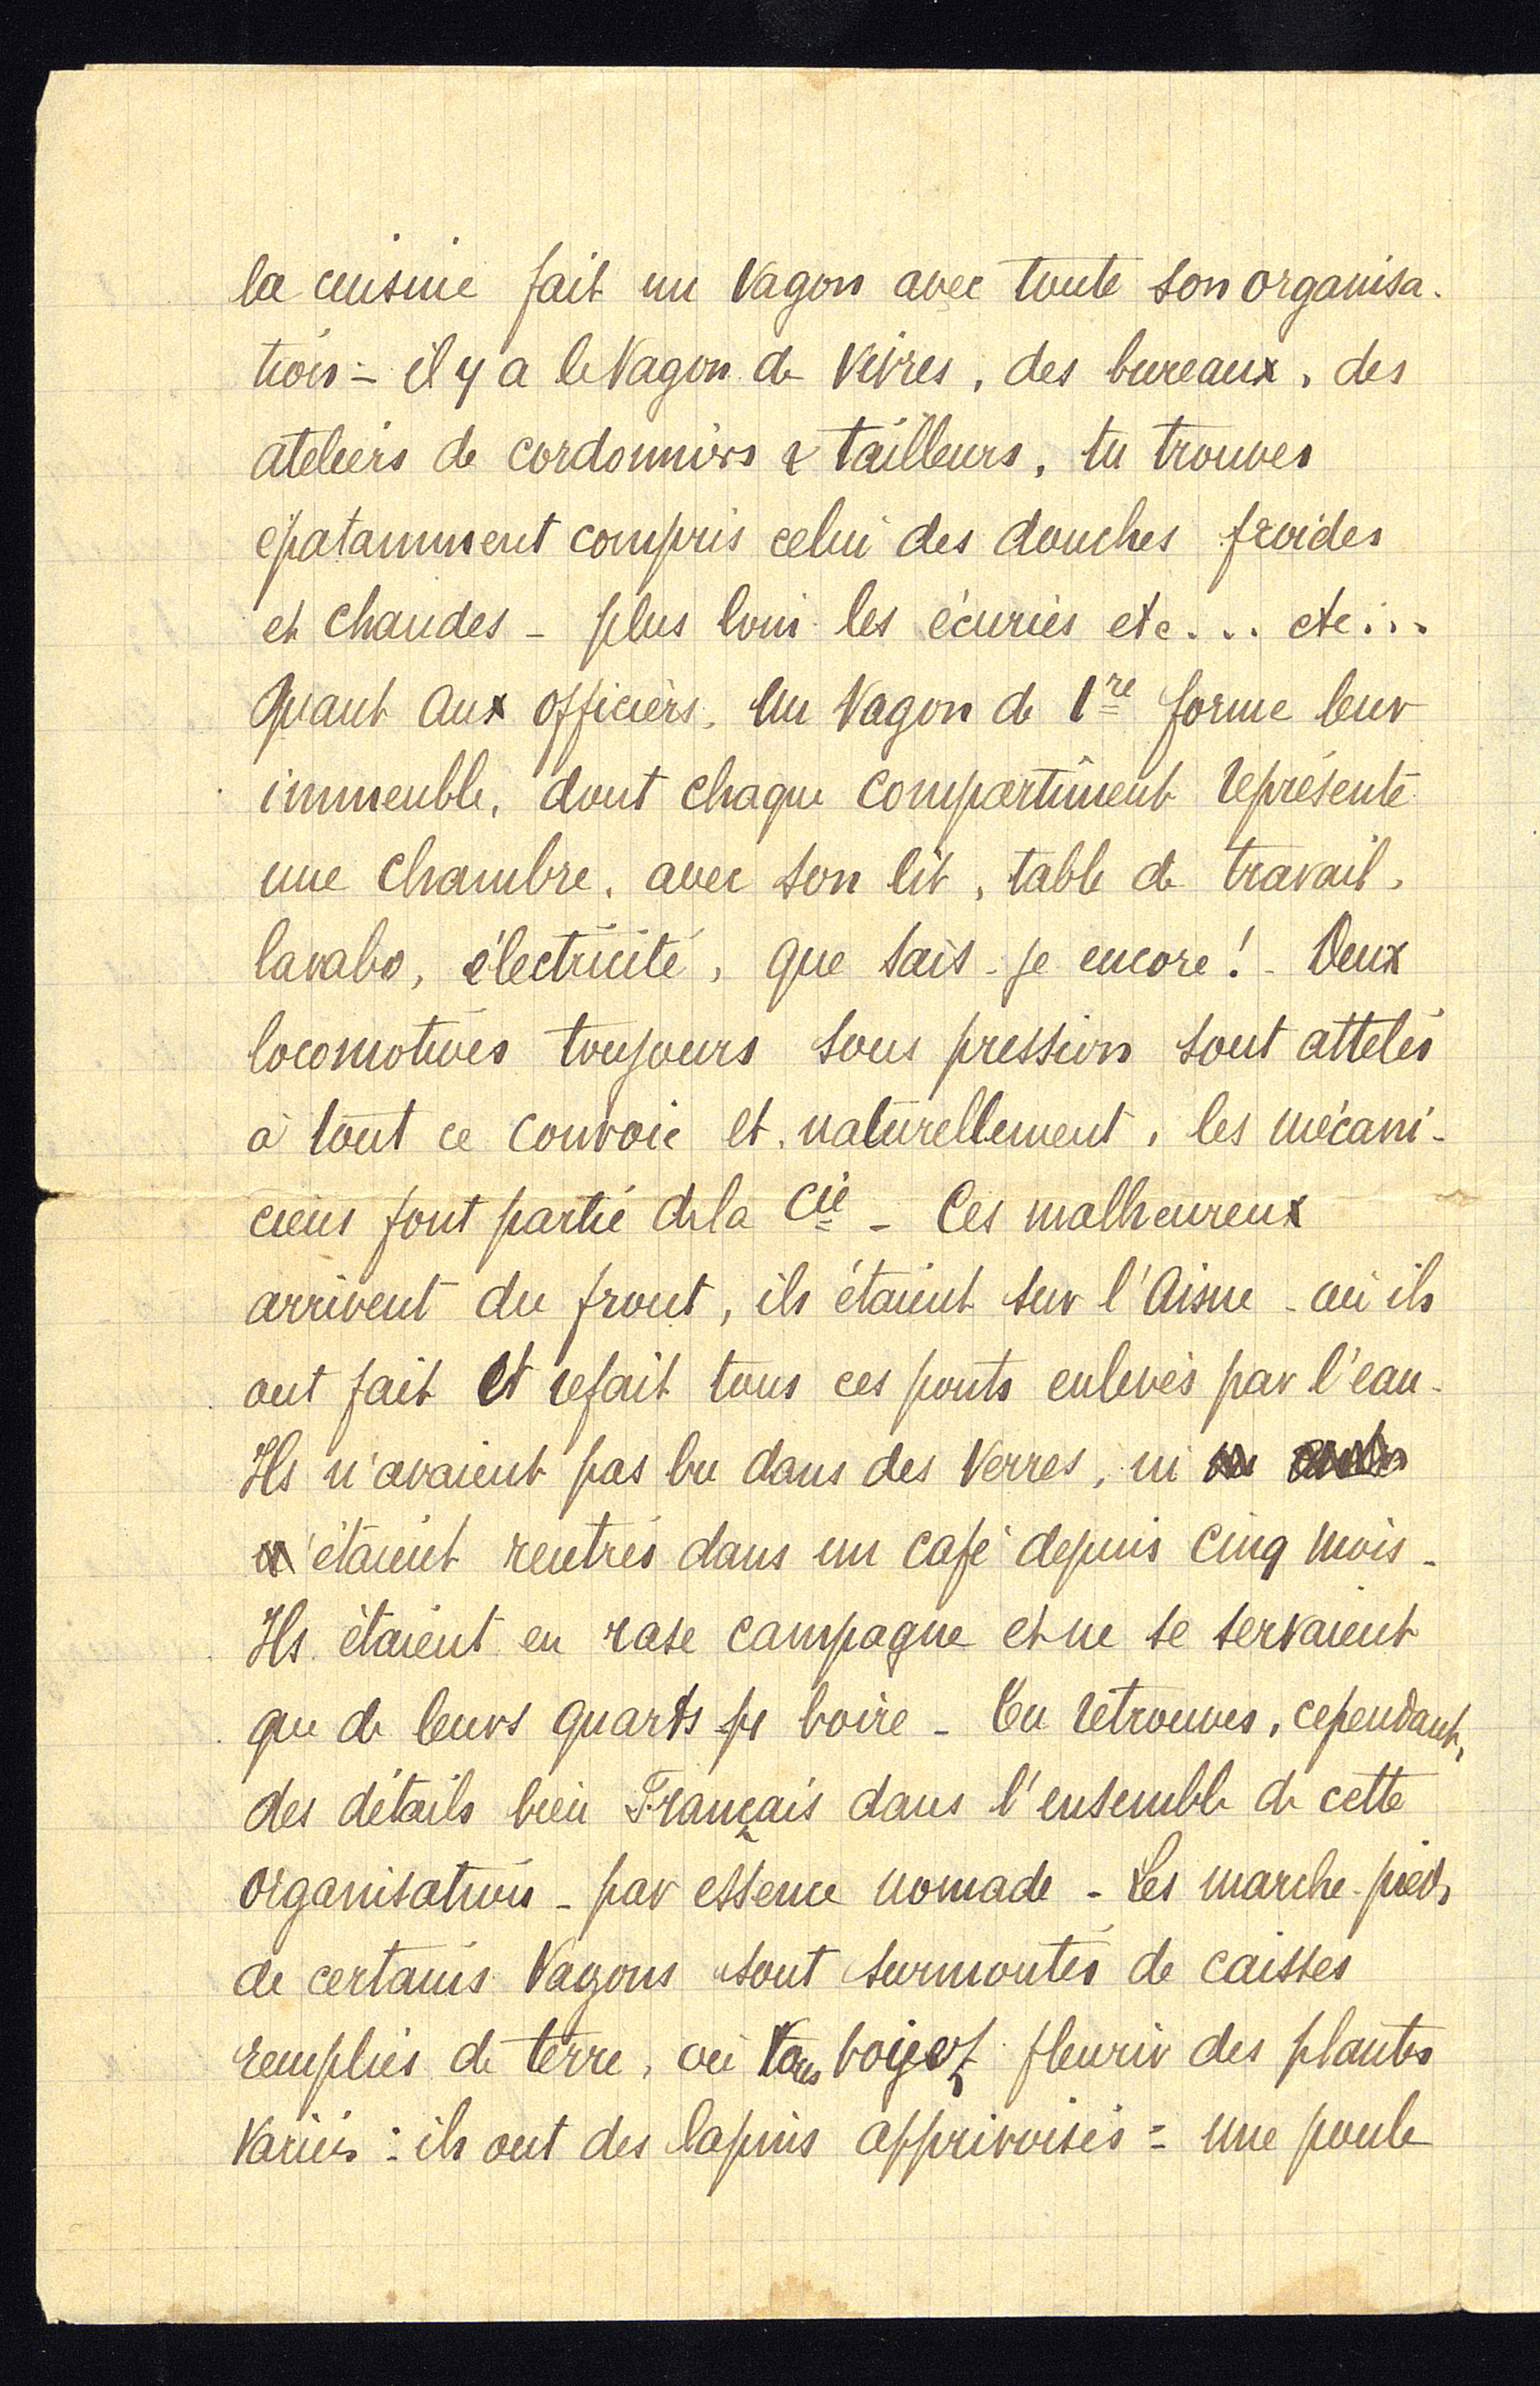 la cuisine fait un Vagon avec toute son organisa-
tion - il y a le Vagon de Vivres, des bureaux, des
ateliers de cordonniers & tailleurs, tu trouves
épatamment compris celui des douches froides
et chaudes - plus loin les écuries etc... etc...
Quant aux officiers, un Vagon de 1re forme leur
immeuble, dont chaque compartiment représente
une chambre, avec son lit, table de travail,
lavabo, électricité, que sais-je encore! - Deux
locomotives toujours sous pression sont attelés
à tout ce convoie et, naturellement, les mécani-
ciens font partie de la Cie - Ces malheureux
arrivent du front, ils étaient sur l'Aisne - où ils
ont fait et refait tous ces ponts enlevés par l'eau -
Ils n'avaient pas bu dans des Verres, ni
étaient rentrés dans un café depuis cinq mois -
Ils étaient en rase campagne et ne se servaient
que de leurs quarts pr boire - Tu retrouves, cependant,
des détails bien Français dans l'ensemble de cette
organisation - par essence nomade - Les marche-pieds
de certains Vagons sont surmontés de caisses
remplies de terre, où vous voyez fleurir des plantes
Variés : ils ont des lapins apprivoisés = une poule